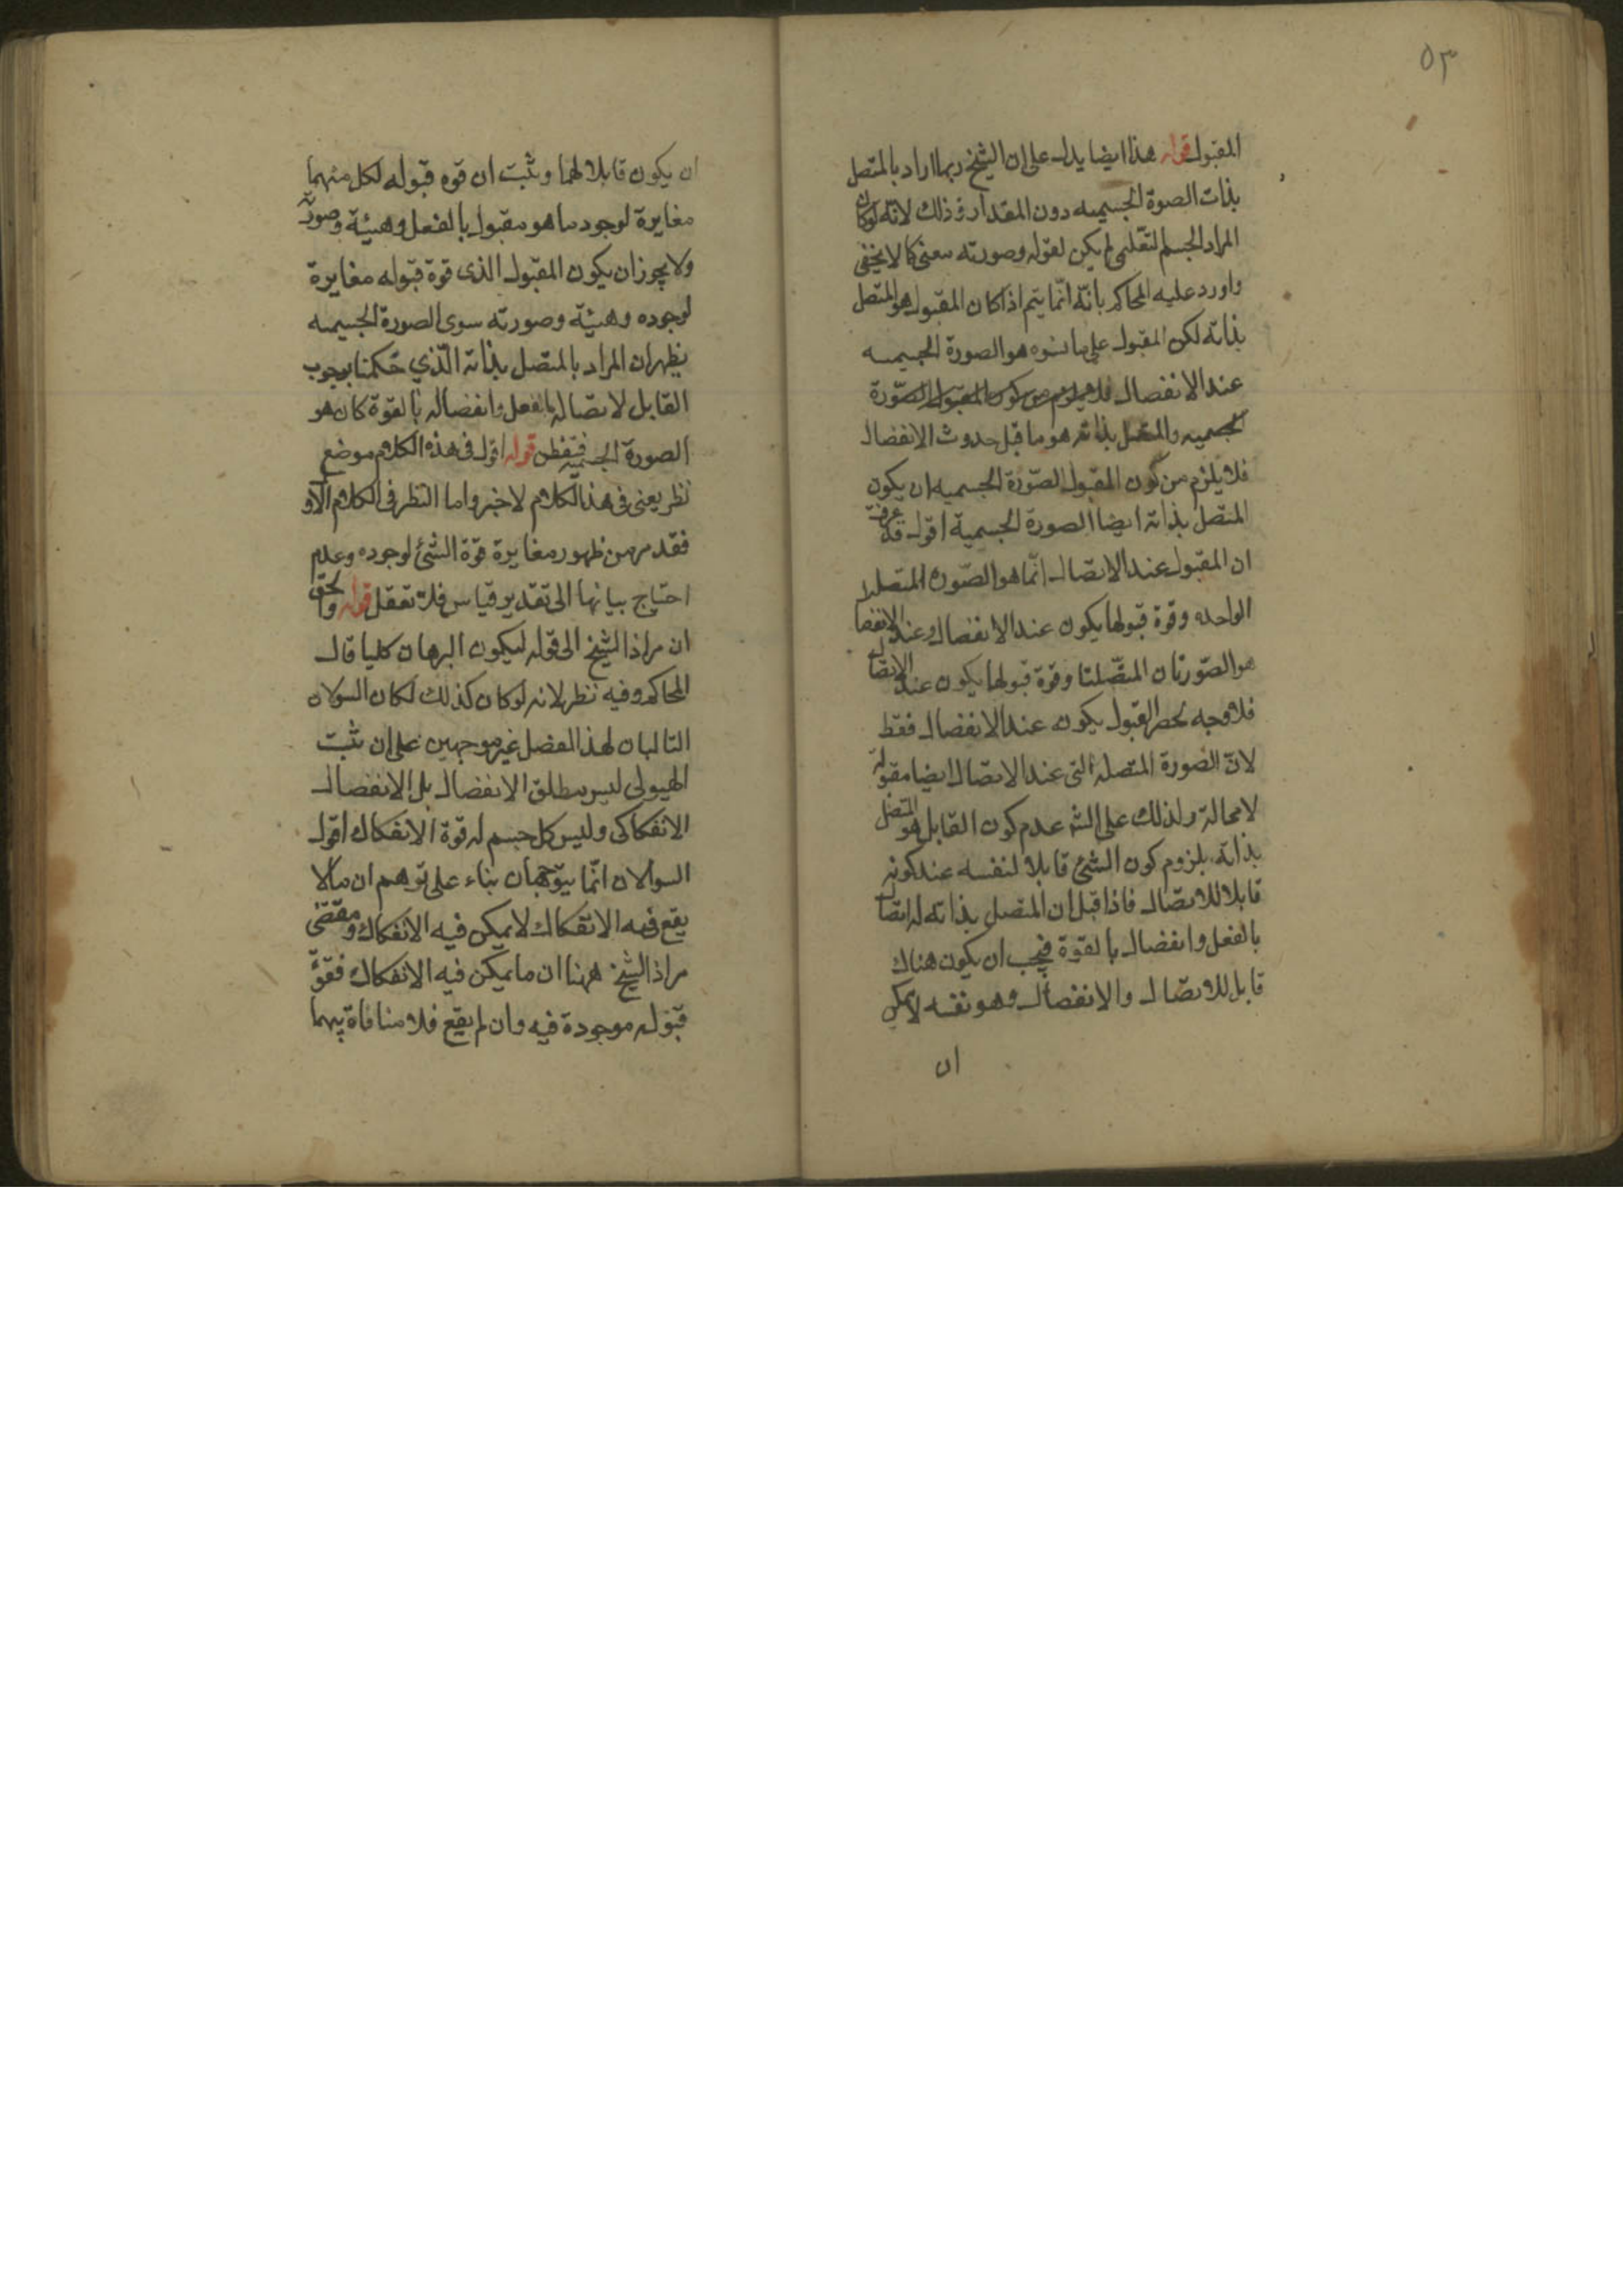 ٥٣
المقبول قوله هذا ايضا يدل على ان الشيخ ربما اراد بالمتصل
بذات الصوة الجسميه دون المقدار وذلك لانه لوكان
المراد الجسم التعلمى لم يكن لقوله وصورته معنى كما لا يخفى
واورد عليه المحاكم بانّه انّما يتم اذا كان المقبول هو المتصل
بذاته لكن المقبول على ما هو الصورة الجسميه
عند الانفصال فلا يلزم من كون المقبول الصّورة
الجسميه والمتصل بذاته هو ما قبل حدوث الانفصال
فلا يلزم من كون المقبول الصّورة الجسميه ان يكون
المتصل بذاته ايضا الصورة الجسمية اقول قد عرفت
ان المقبول عند الاتصال انّما هو الصّورة المتصله
الواحده وقوة قبولها يكون عند الانفصال وعند الانفصا
هو الصّورتان المتصّلتا وقوة قبولها يكون عند الاتصال
فلا وجه لحصر القبول يكون عند الانفصال فقط
لانّ الصّورة المتصله التى عند الاتصال ايضا مقبولة
لا محالة ولذلك على الشه عدم كون القابل هو المتصل
بذاته بلزوم كون الشئ قابلا لنفسه عند كونه
قابلا للاتصال فاذا قيل ان المتصل بذاته له اتصال
بالفعل وانفصال بالقوة فيجب ان يكون هناك
قابل للاتصال والانفصال وهو نفسه لا يمكن
ان
ان يكون قابلا لهما وثبت ان قوه قبوله لكل منهما
مغايرة لوجود ما هو مقبول بالفعل وهيئة وصورته
ولا يجوز ان يكون المقبول الذى قوة قبوله مغايرة
لوجوده وهيئة وصورته سوى الصورة الجسميه
يظهر ان المراد بالمتصل بذاته الّذي حكمنا بوجوب
القابل لاتصاله بالفعل وانفصاله بالقوة كان هو
الصورة الجسميه فتفطن قوله اقول فى هذه الكلام موضع
نظر يعنى فى هذا الكلام لاخير واما النظر فى الكلام الاو
فقد مر من ظهور مغايرة قوة الشئ لوجوده وعدم
احتياج بيانها الى تقدير قياس فلا تغفل قوله والحق
ان مراد الشيخ الى قوله ليكون البرهان كليا قال
المحاكم وفيه نظر لانه لوكان كذلك لكان السولان
التاليان لهذ الفصل غير موجهين على ان مثبت
الهيولى ليس مطلق الانفصال بل الانفصال
الانفكاكى وليس كل جسم له قوة الانفكاك اقول
السولان انّما يتوّجهان بناء على توهم ان مالا
يقع فيه الانفكاك لا يمكن فيه الانفكاك ومقتضى
مراد الشيخ ههنا ان ما يمكن فيه الانفكاك فقوّة
قبوله موجودة فيه وان لم يقع فلا منافاة بينهما